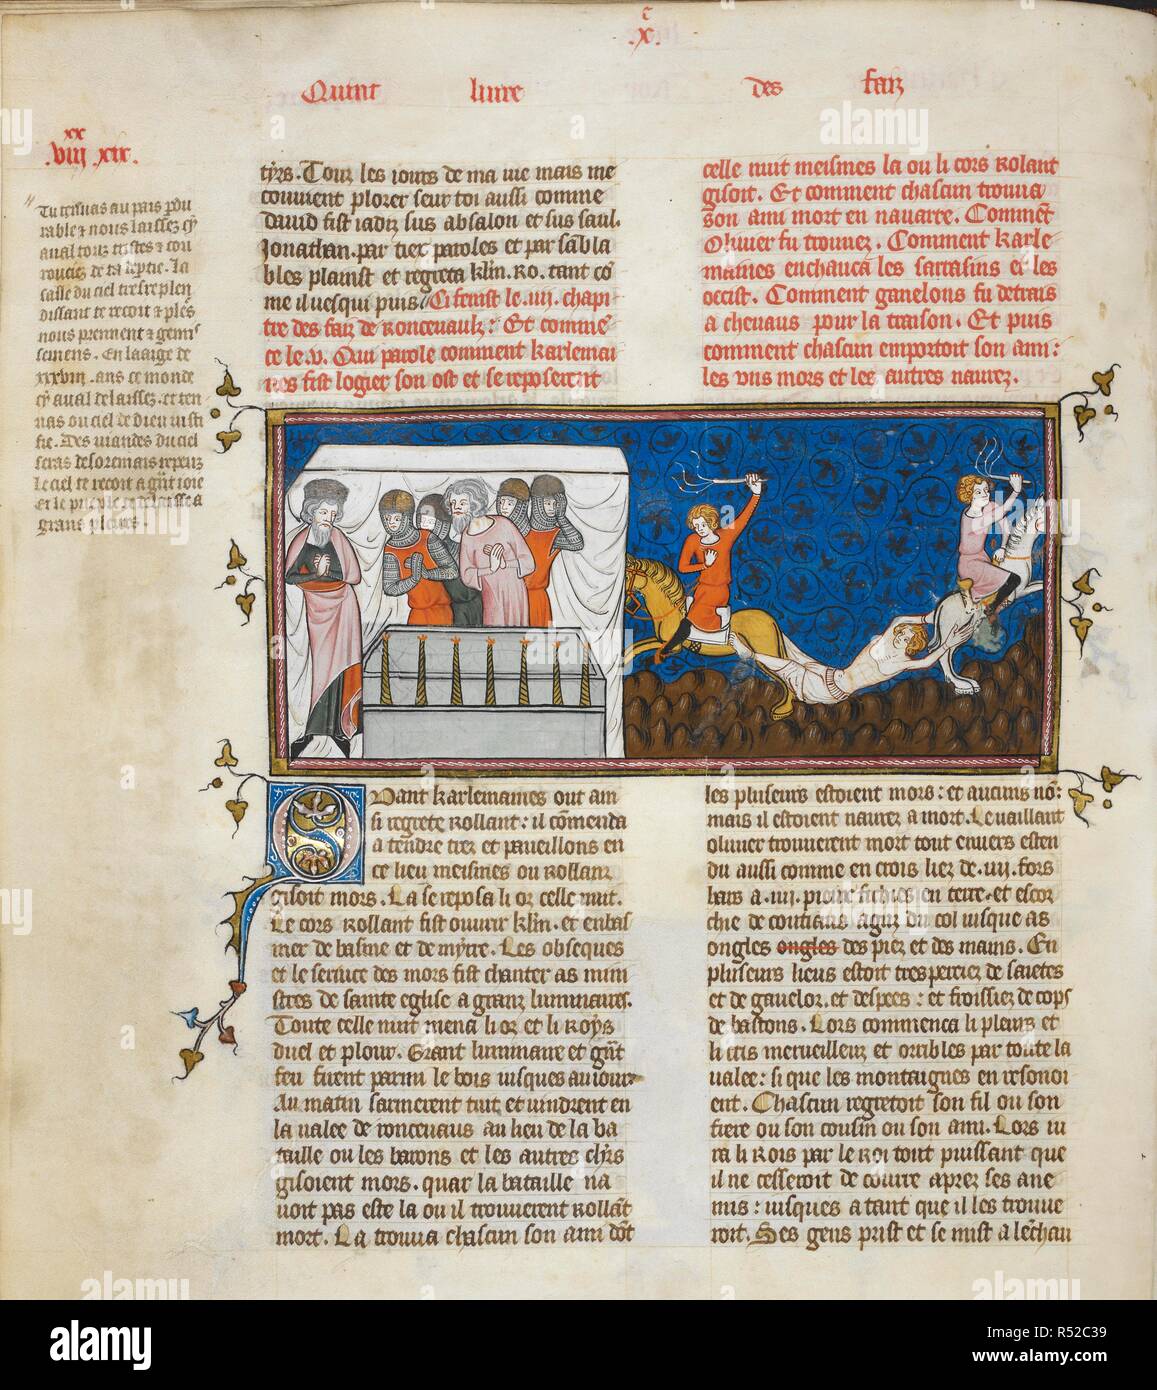 c
.x.
Quint livre des faiz
xx
.viij xix.
Tu tresvas au pais p
rable et nous laissez
aval touz tristes et cou
rouciez de ta
salle du ciel tresreplen
dissant te recoit et ples
nous prennent et gemis
semens. En laage de
xxxviij. ans ce monde
aval delaissez. et ten
vas ou ciel de dieu
fie. Des viandes du ciel
seras desoremais repeuz
le ciel te recoit a joie
Et le pueple te delaisse a
grans pleures.
tyrs. Touz les iours de ma vie mais me
couvient plorer seur toi aussi comme
david fist iadiz sus absalon et sus saul.
Jonathan. par tiex paroles et par sembla
bles plainst et regreta klm. Ro. tant co
me il vesqui puis. Ci fenist le .iiij. chapi
tre des faiz de Roncevaulz: Et comme
ce le .v. Qui parole comment karlemai
nes fist logier son ost et se reposerent
celle nuit meismes la ou li cors Rolant
gisoit. Et comment chascun trouva
son ami mort en navarre. Coment
Olivier fu trouvez. Comment karle
maines enchauca les sarrasins et les
occist. Comment ganelons fu detrais
a chevaus pour la traison. Et puis
comment chascun emportoit son ami:
les uns mors et les autres navrez.
Quant karlemaines out ain
si regrete Rollant: il comenda
a tendre trez et paveillons en
ce lieu meismes ou Rollanz
gisoit mors. La se reposa li oz celle nuit.
Le cors Rollant fist ouvrir klm. et enbas
mer de basme et de myrre. Les obseques
et le servise des mors fist chanter as mini
stres de sainte eglise a granz luminaires.
Toute celle nuit mena li oz et li Roys
duel et plour. Grant luminaire et grant
feu furent parmi le bois iusques au iour
Au matin sarmerent tuit et vindrent en
la valee de Roncevaus au lieu de la ba
taille ou les barons et les autres chrs
gisoient mors. quar la bataille na
voit pas este la ou il trouverent Rollant
mort. La trouva chascun son ami dont
les pluseurs estoient mors: et aucuns non:
mais il estoient navrez a mort. Le vaillant
olivier trouverent mort tout envers esten
du aussi comme en crois liez de .iiij. fors
hars a .iiij. fichies en terre. et escor
chie de coutiaus aguz du col iusque as
ongles ongles des piez et des mains. En
pluseurs lieus estoit trespercez de saietes
et de gavelor. et despees: et froissiez de cops
de bastons. Lors commenca li pleurs et
li cris merveilleux et orribles par toute la
valee: si que les montaignes en resonoi
ent. Chascun regretoit son fil ou son
frere ou son cousin ou son ami. Lors iu
ra li Rois par le Roi tout puissant que
il ne cesseroit de courre aprez ses ane
mis: iusques a tant que il les trouve
roit. Ses gens prist et se mist a lenchau
alamy
Image ID: R52C39
www.alamy.com